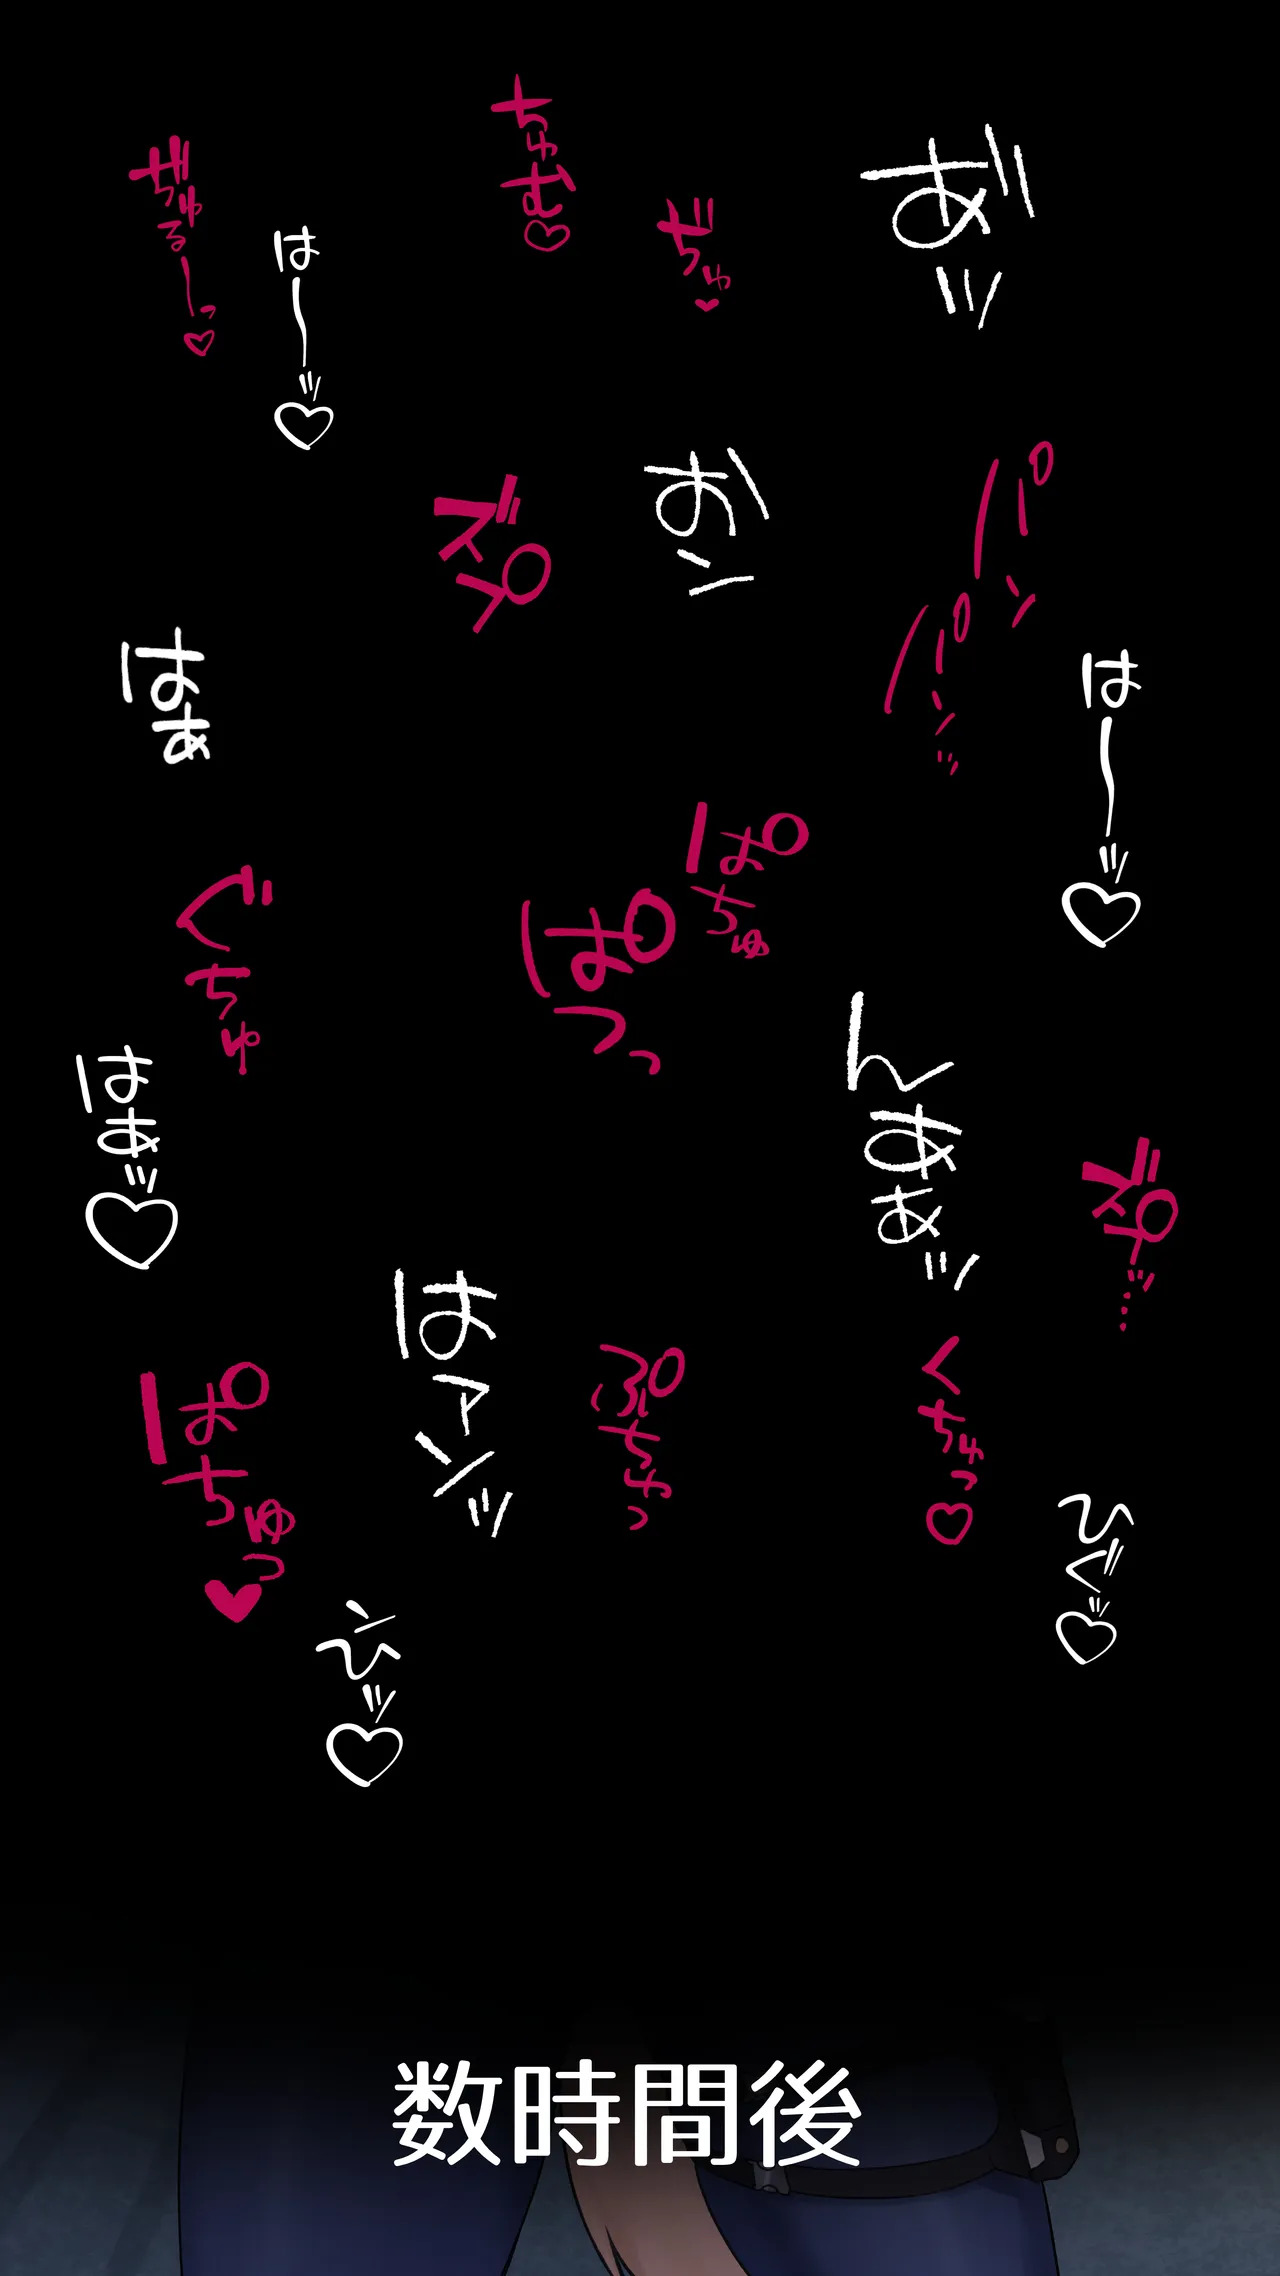 あ゛ッ
ぢゅ♥
ちゅむ♡
は〜〜ッ♡
ぢゅるーっ♡
パン
パンッ
お\ン
ズプ
は〜〜ッ♡
はぁ
ぱちゅ
ぱつっ
ぐちゅ
んあぁッ
ズプッ…
はぁッ♡
はァンッ
くちゅっ♡
ぷちゅっ
ぱちゅっ♥
ひぐッ♡
ンひッ♡
数時間後